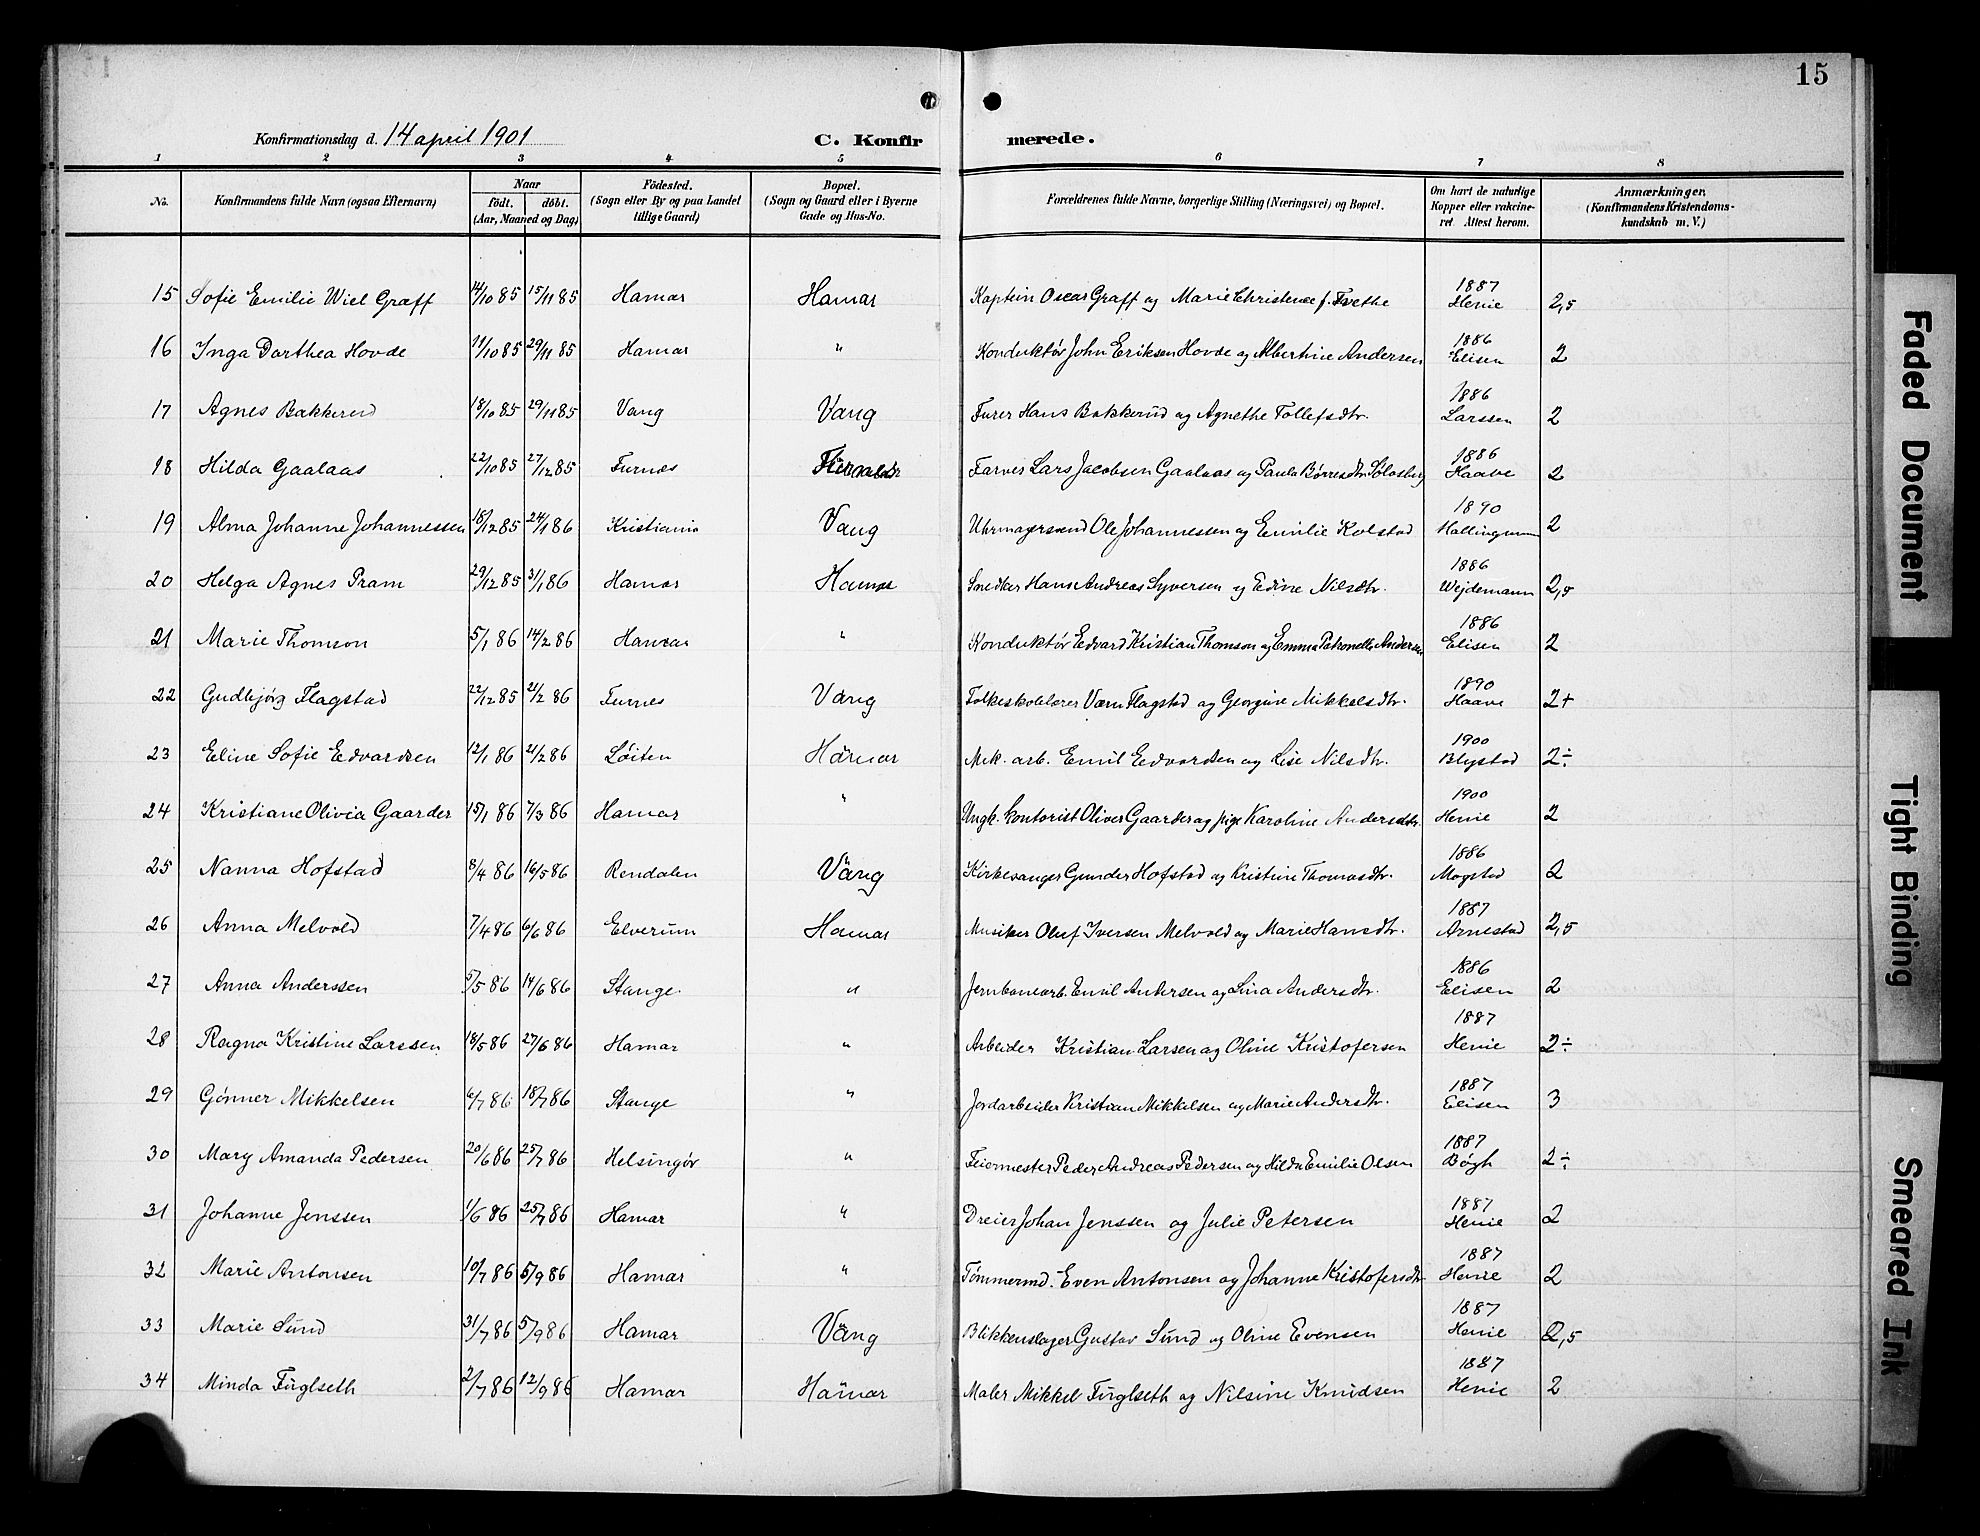 15
Konfirmationsdag d. 14 april 1901 C. Konfirmerede.
1 2 3 4 5 6 7 8
No. Konfirmandens fulde Navn (ogsaa Efternavn) Naar födt. döbt. (Aar, Maaned og Dag) Födested. (Sogn eller By og paa Landet tillige Gaard) Bopæl. (Sogn og Gaard eller i Byerne Gade og Hus-No. Forældrenes fulde Navne, borgerlige Stilling (Næringsvei) og Bopæl. Om havt de naturlige Kopper eller vakcineret Attest herom. Anmærkninger. (Konfirmandens Kristendomskundskab m. V.)
15 Sofie Emilie Wiel Graff 14/10 85 15/11 85 Hamar Hamar Kaptein Oscar Graff og Marie Christence f. Tvethe 1887 Henie 2,5
16 Inga Dorthea Hovde 11/10 85 29/11 85 Hamar " Konduktör John Eriksen Hovde og Albertine Andersen 1886 Elisen 2
17 Agnes Bakkerud 18/10 85 29/11 85 Vang Vang Furer Hans Bakkerud og Agnethe Tollefsdtr. 1886 Larssen 2
18 Hilda Gaalaas 22/10 85 27/12 85 Furnes Farver Lars Jacobsen Gaalaas og Paula Børresdtr. 1886 Haave 2
19 Alma Johanne Johannessen 18/12 85 24/1 86 Kristiania Vang Uhrmagersvend Ole Johannessen og Emilie Kolstad 1890 2
20 Helga Agnes Pram 29/12 85 31/1 86 Hamar Hamar Snedker Hans Andreas Syversen og Edine Nilsdtr. 1886 Wejdemann 2,5
21 Marie Thomson 5/1 86 14/2 86 Hamar " Konduktør Edvard Kristian Thomson og Emma Petronelle Andersen 1886 Elisen 2
22 Gudbjörg Flagstad 22/12 85 21/2 86 Furnes Vang Folkeskolelærer Værn Flagstad og Georgine Mikkelsdtr. 1890 Haave 2+
23 Eline Sofie Edvardsen 12/1 86 21/2 86 Løiten Hamar Mek. arb. Emil Edvardsen og Lise Nilsdtr. 1900 Blystad 2÷
24 Kristiane Olivia Gaarder 15/1 86 7/3 86 Hamar " Ungk. kontorist Oliver Gaarder og pige Karoline Andersdtr. 1900 Henie 2
25 Nanna Hofstad 8/4 86 16/5 86 Rendalen Vang Kirkesanger Gunder Hofstad og Kristine Thomasdtr. 1886 Mogstad 2
26 Anna Melvold 7/4 86 6/6 86 Elverum Hamar Musiker Oluf Iversen Melvold og Marie Hansdtr. 1887 Arnestad 2,5
27 Anna Anderssen 5/5 86 14/6 86 Stange " Jernbanearb. Emil Andersen og Lina Andersdtr. 1886 Elisen 2
28 Ragna Kristine Larssen 18/5 86 27/6 86 Hamar " Arbeider Kristian Larsen og Oline Kristofersen 1887 Henie 2÷
29 Gönner Mikkelsen 6/7 86 18/7 86 Stange " Jordarbeider Kristian Mikkelsen og Marie Andersdtr. 1887 Elisen 3
30 Mary Amanda Pedersen 20/6 86 25/7 86 Helsingør " Feiermester Peder Andreas Pedersen og Hilda Emilie Olsen 1887 Bøgh 2÷
31 Johanne Jenssen 1/6 86 25/7 86 Hamar " Dreier Johan Jenssen og Julie Petersen 1887 Henie 2
32 Marie Antonsen 10/7 86 5/9 86 Hamar " Tømmermd. Even Antonsen og Johanne Kristofersdtr. 1887 Henie 2
33 Marie Sund 31/7 86 5/9 86 Hamar Vang Blikkenslager Gustav Sund og Oline Evensen 1887 Henie 2,5
34 Minda Fuglseth 2/7 86 12/9 86 Hamar Hamar Maler Mikkel Fuglseth og Nilsine Knudsen 1887 Henie 2
Faded Document
Tight Binding
Smeared Ink